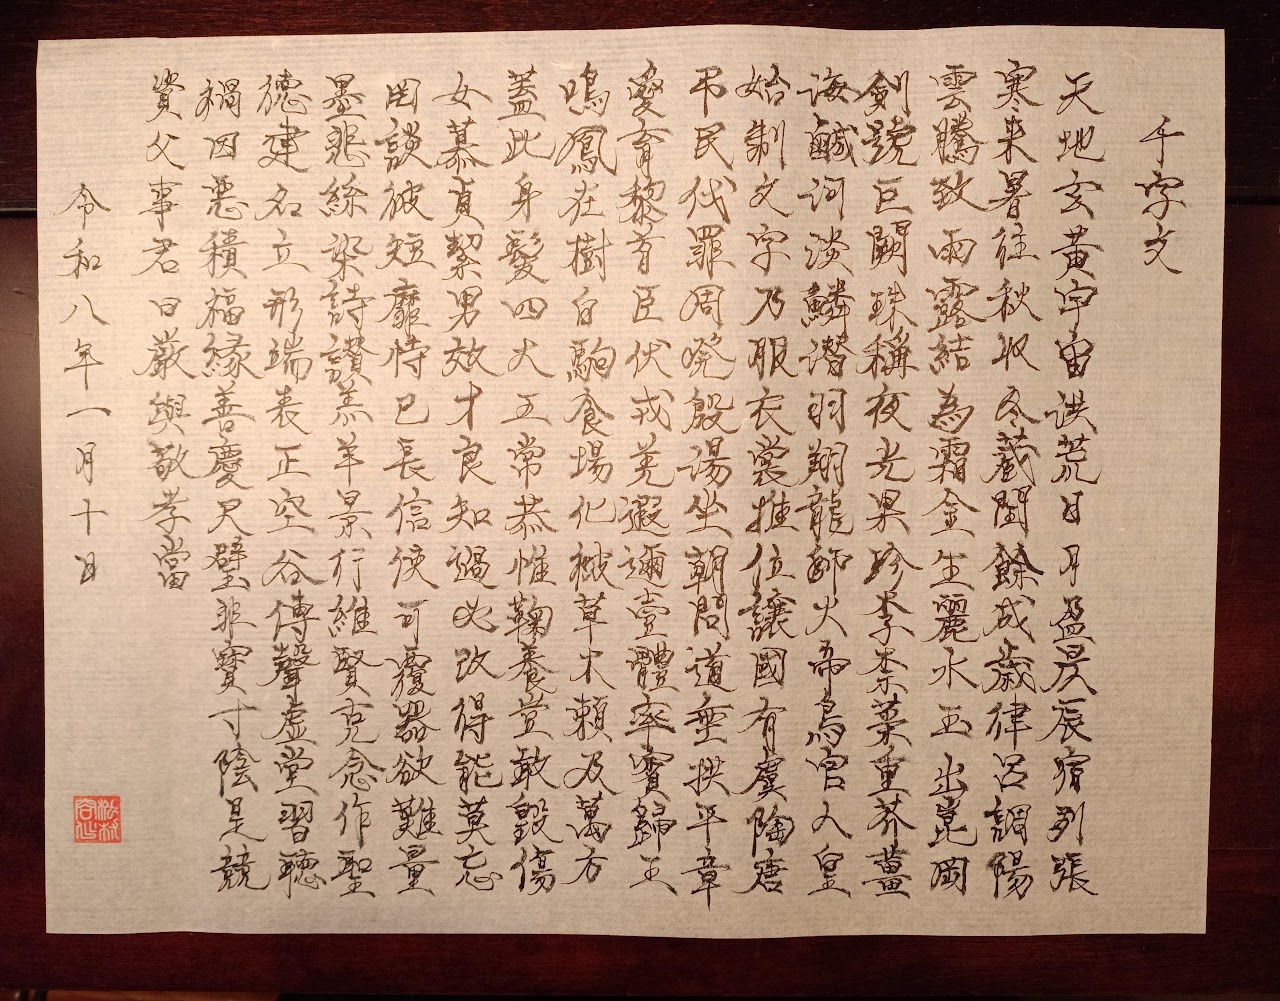 千字文
天地玄黄宇宙洪荒日月盈昃辰宿列張
寒来暑往秋収冬蔵閏餘成歳律呂調陽
雲騰致雨露結為霜金生麗水玉出崑岡
劍號巨闕珠稱夜光果珍李柰菜重芥薑
海鹹河淡鱗潜羽翔龍師火帝鳥官人皇
始制文字乃服衣裳推位讓國有虞陶唐
弔民伐罪周發殷湯坐朝問道垂拱平章
愛育黎首臣伏戎羌遐邇壹體率賓歸王
鳴鳳在樹白駒食場化被草木頼及萬方
蓋此身髮四大五常恭惟鞠養豈敢毀傷
女慕貞絜男效才良知過必改得能莫忘
罔談彼短靡恃己長信使可覆器欲難量
墨悲絲染詩讃羔羊景行維賢克念作聖
徳建名立形端表正空谷傳聲虚堂習聽
禍因悪積福縁善慶尺璧非寶寸陰是競
資父事君曰嚴與敬孝當
令和八年一月十日